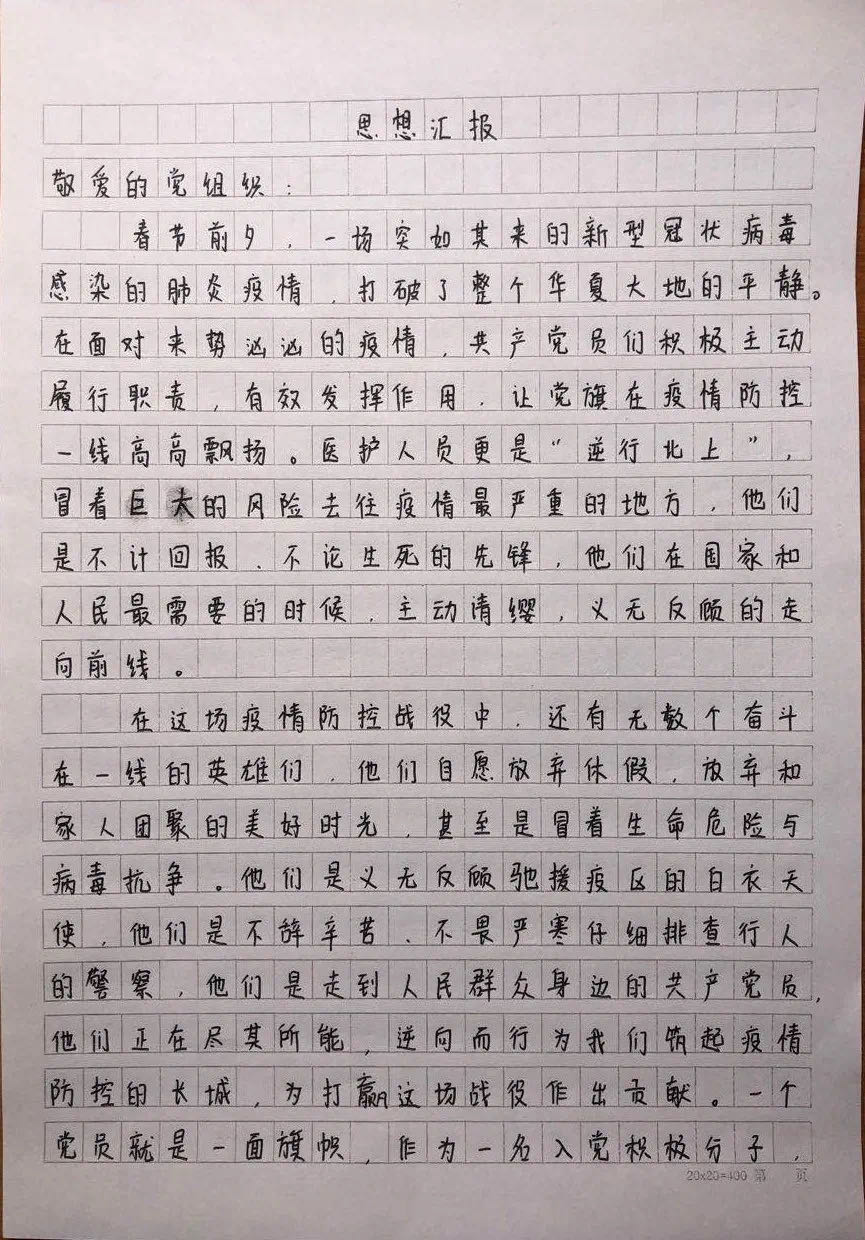 思想汇报
敬爱的党组织：
春节前夕，一场突如其来的新型冠状病毒
感染的肺炎疫情，打破了整个华夏大地的平静。
在面对来势汹汹的疫情，共产党员们积极主动
履行职责，有效发挥作用，让党旗在疫情防控
一线高高飘扬。医护人员更是“逆行北上”，
冒着巨大的风险去往疫情最严重的地方，他们
是不计回报、不论生死的先锋，他们在国家和
人民最需要的时候，主动请缨，义无反顾的走
向前线。
在这场疫情防控战役中，还有无数个奋斗
在一线的英雄们，他们自愿放弃休假，放弃和
家人团聚的美好时光，甚至是冒着生命危险与
病毒抗争。他们是义无反顾驰援疫区的白衣天
使，他们是不辞辛苦、不畏严寒仔细排查行人
的警察，他们是走到人民群众身边的共产党员，
他们正在尽其所能，逆向而行为我们筑起疫情
防控的长城，为打赢这场战役作出贡献。一个
党员就是一面旗帜，作为一名入党积极分子，
20x20=400 第 页